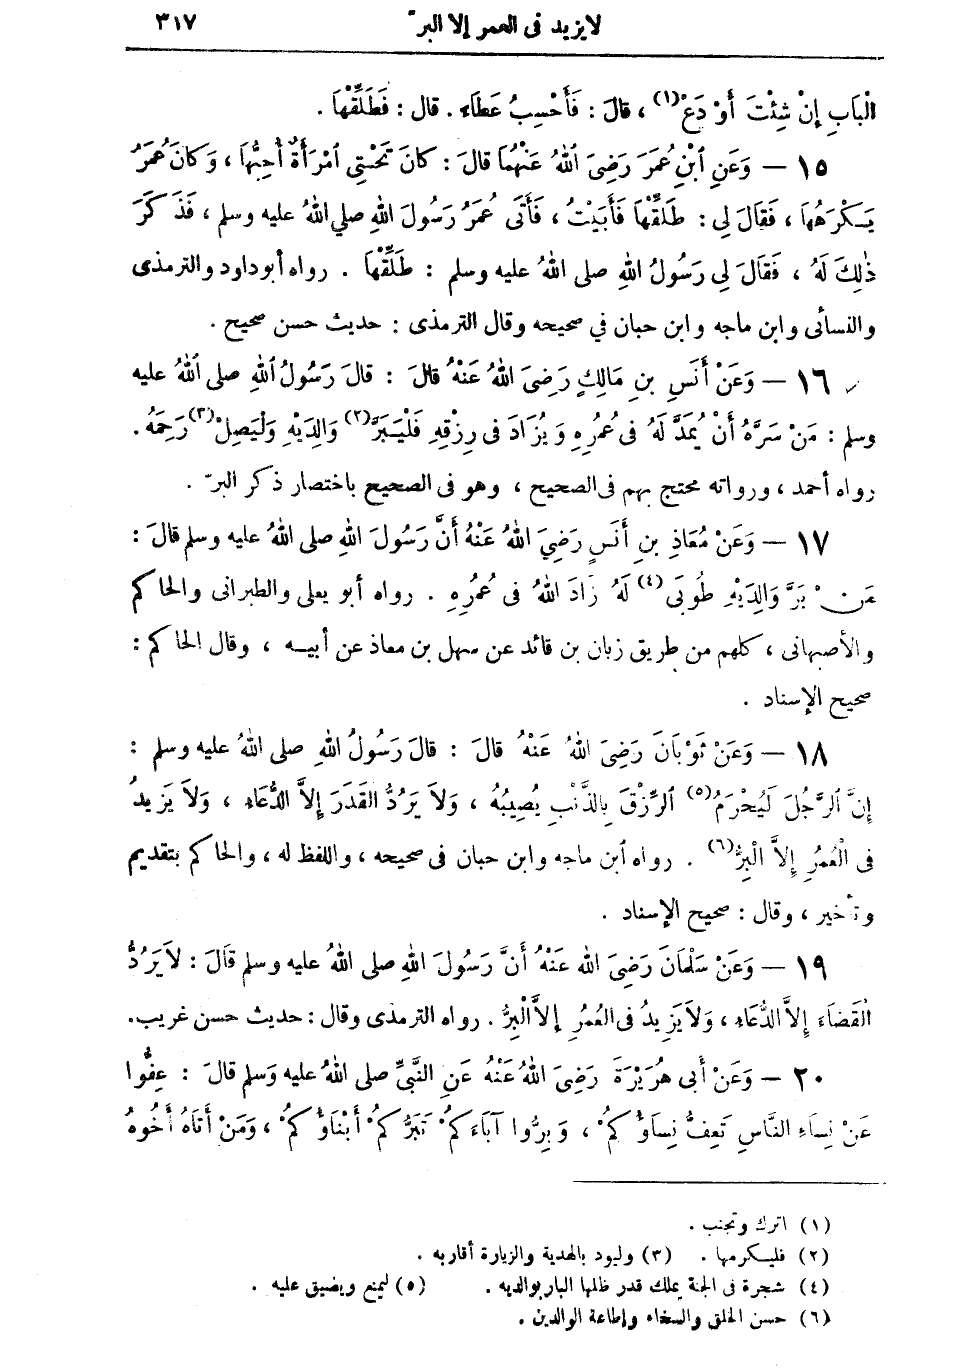 لا يزيد فى العمر إلا البرّ ٣١٧
الْبَابِ إِنْ شِئْتَ أَوْ دَعْ(١) ، قالَ : فَأَحْسِبُ عَطَاء . قال : فَطَلِّقْهَا .
١٥ — وَعَنِ ٱبْنِ عُمَرَ رَضِىَ اللهُ عَنْهُمَا قالَ : كانَ تَحْتِى ٱمْرَأَةٌ أُحِبُّهَا ، وَكانَ عُمَرُ
يَكْرَهُهَا ، فَقَالَ لِى : طَلِّقْهَا فَأَبَيْتُ ، فَأَتَى عُمَرُ رَسُولَ اللهِ صلى اللهُ عليه وسلم ، فَذَكَرَ
ذٰلِكَ لَهُ ، فَقَالَ لِى رَسُولُ اللهِ صلى اللهُ عليه وسلم : طَلِّقْهَا . رواه أبو داود والترمذى
والنسائى وابن ماجه وابن حبان في صحيحه وقال الترمذى : حديث حسن صحيح .
١٦ — وَعَنْ أَنَسِ بنِ مَالِكٍ رَضِىَ اللهُ عَنْهُ قالَ : قالَ رَسُولُ ٱللهِ صلى ٱللهُ عليه
وسلم : مَنْ سَرَّهُ أَنْ يُمَدَّ لَهُ فى عُمُرِهِ وَيُزَادَ فى رِزْقِهِ فَلْيَبَرَّ(٢) وَالِدَيْهِ وَلْيَصِلْ(٣) رَحِمَهُ .
رواه أحمد ، ورواته محتج بهم فى الصحيح ، وهو فى الصحيح باختصار ذكر البرّ .
١٧ — وَعَنْ مُعَاذِ بنِ أَنَسٍ رَضِيَ اللهُ عَنْهُ أَنَّ رَسُولَ اللهِ صلى اللهُ عليه وسلم قالَ :
مَنْ بَرَّ وَالِدَيْهِ طُوبَى(٤) لَهُ زَادَ اللهُ فى عُمُرِهِ . رواه أبو يعلى والطبرانى والحاكم
والأصبهانى ، كلهم من طريق زبان بن قائد عن سهل بن معاذ عن أبيه ، وقال الحاكم :
صحيح الإسناد .
١٨ — وَعَنْ ثَوْبَانَ رَضِىَ اللهُ عَنْهُ قالَ : قالَ رَسُولُ اللهِ صلى اللهُ عليه وسلم :
إِنَّ ٱلرَّجُلَ لَيُحْرَمُ(٥) ٱلرِّزْقَ بِالذَّنْبِ يُصِيبُهُ ، وَلاَ يَرُدُّ القَدَرَ إِلاَّ الدُّعَاءُ ، وَلاَ يَزِيدُ
فى الْعُمُرِ إِلاَّ الْبِرُّ(٦) . رواه ٱبن ماجه وابن حبان فى صحيحه ، واللفظ له ، والحاكم بتقديم
وتأخير ، وقال : صحيح الإسناد .
١٩ — وَعَنْ سَلْمَانَ رَضِىَ الله عَنْهُ أَنَّ رَسُولَ اللهِ صلى اللهُ عليه وسلم قَالَ : لاَ يَرُدُّ
الْقَضَاءَ إِلاَّ الدُّعَاءُ ، وَلاَ يَزِيدُ فى العُمُرِ إِلاَّ الْبِرُّ . رواه الترمذى وقال : حديث حسن غريب .
٢٠ — وَعَنْ أَبى هُرَيْرَةَ رَضِىَ اللهُ عَنْهُ عَنِ النَّبِيِّ صلى اللهُ عليه وَسلم قالَ : عِفُّوا
عَنْ نِسَاءِ النَّاسِ تَعِفُّ نِسَاؤُكُمْ ، وَبِرُّوا آبَاءَكُمْ تَبَرُّكُمْ أَبْنَاؤُكُمْ ، وَمَنْ أَتَاهُ أَخُوهُ
(١) اترك وتجنب .
(٢) فليكرمها . (٣) وليود بالهدية والزيارة أقاربه .
(٤) شجرة فى الجنة يملك قدر ظلها البار بوالديه . (٥) ليمنع ويضيق عليه .
(٦) حسن الخلق والسخاء وإطاعة الوالدين .